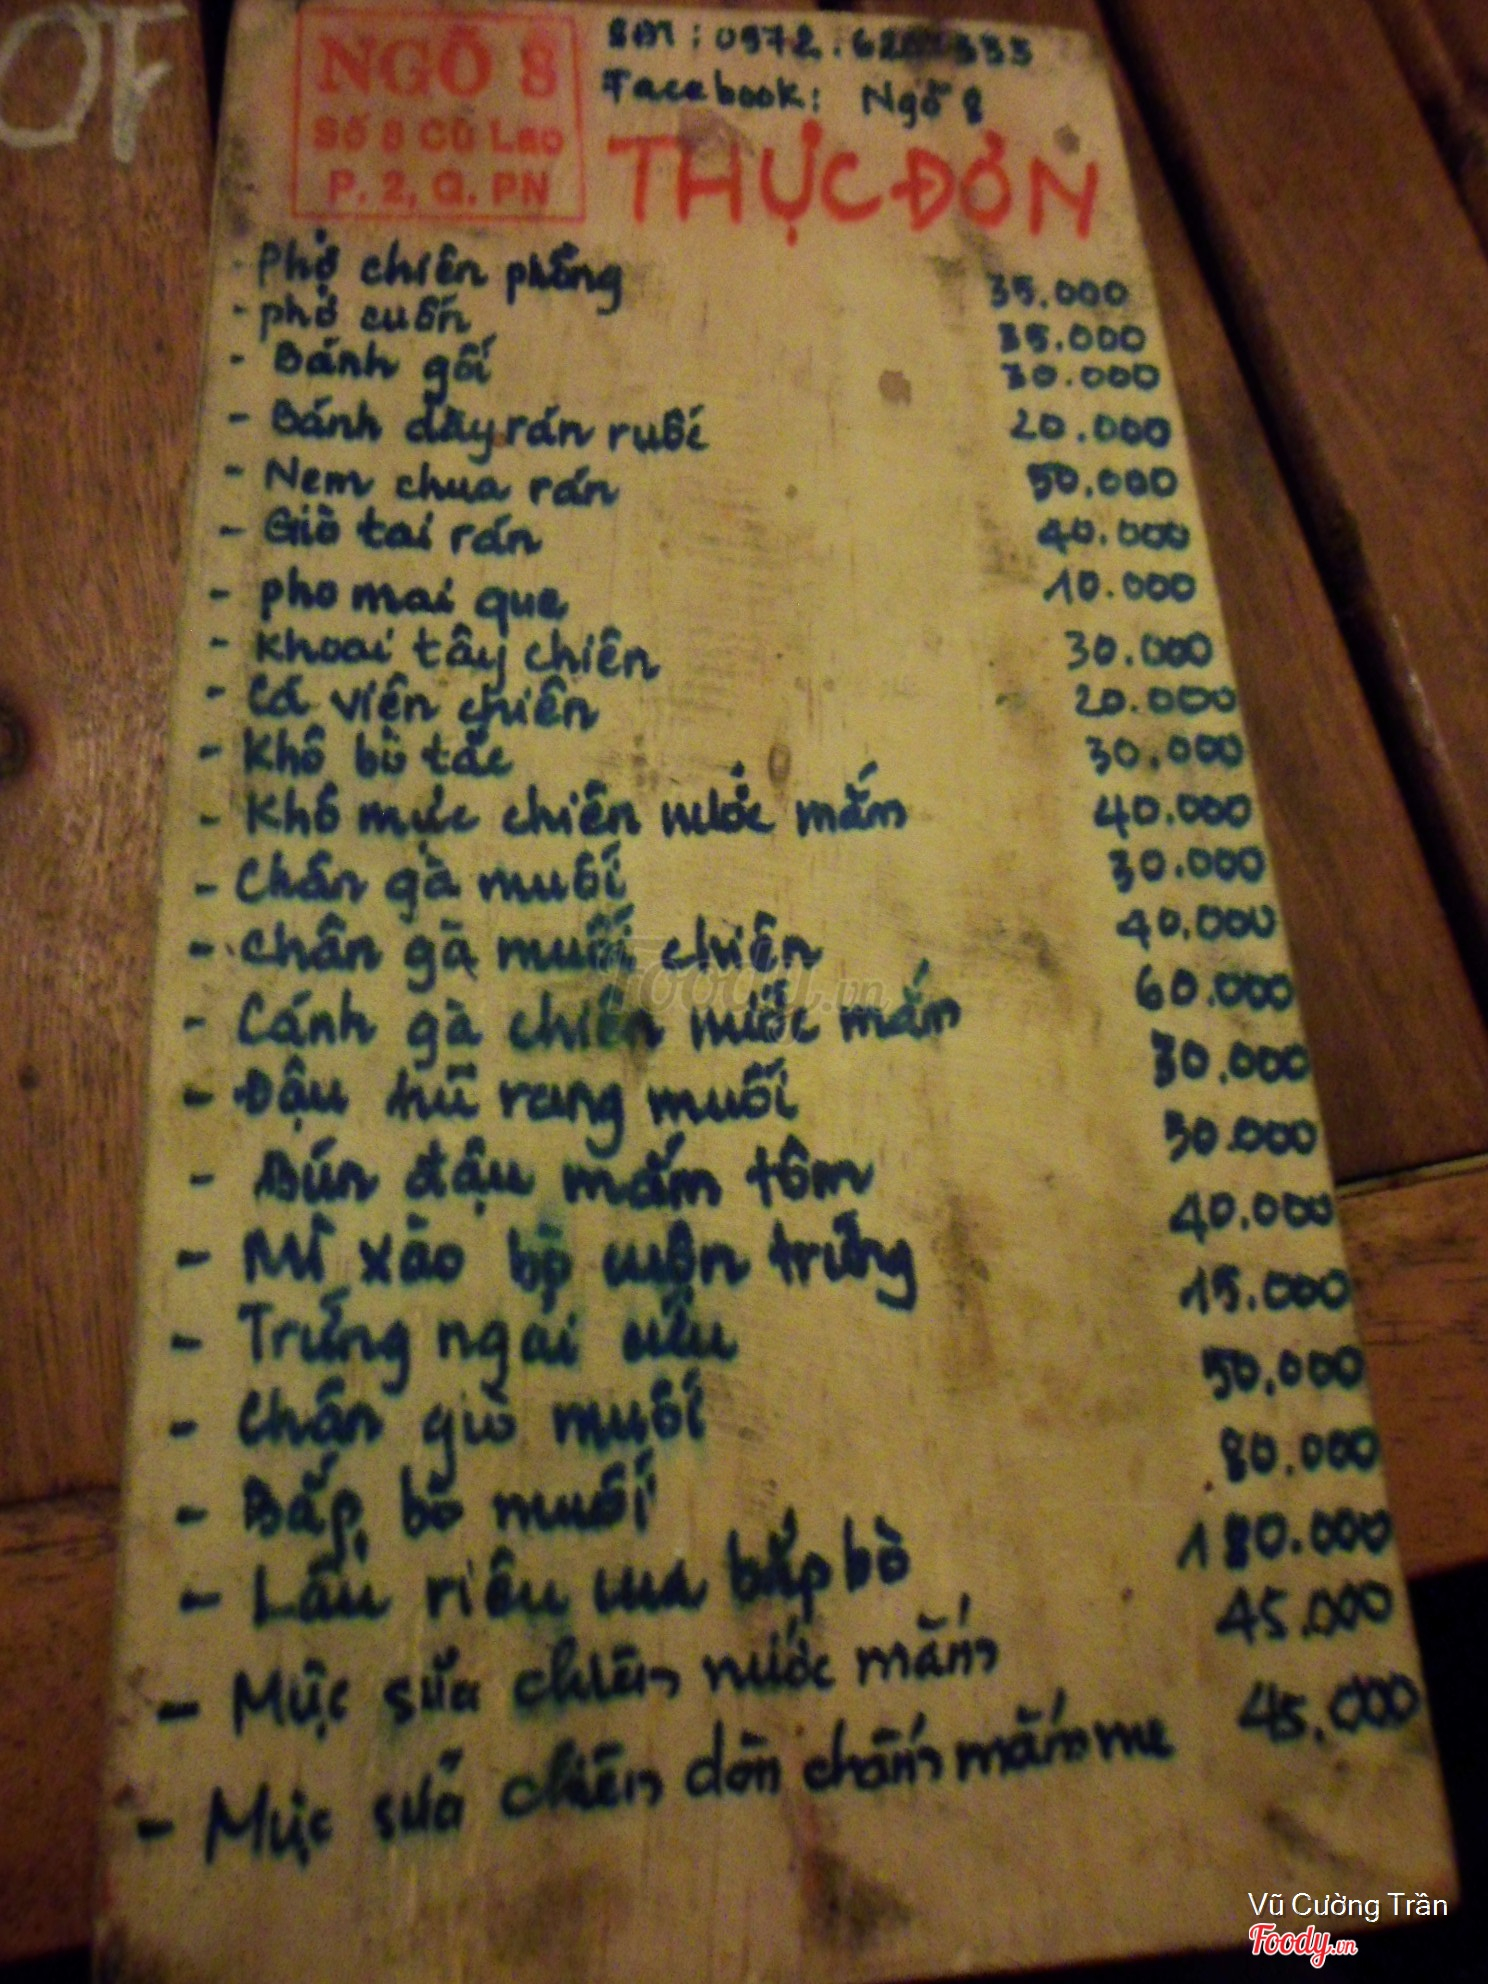 OF
NGÕ 8
Số 8 Cù Lao
P. 2, Q. PN
SĐT : 0972
Facebook: Ngõ 8
THỰC ĐƠN
- Phở chiên phồng 35.000
- phở cuốn 35.000
- Bánh gối 30.000
- Bánh dầy rán ruốc 20.000
- Nem chua rán 50.000
- Giò tai rán 40.000
- pho mai que 10.000
- Khoai tây chiên 30.000
- Cá viên chiên 20.000
- Khô bò tắc 30.000
- Khô mực chiên nước mắm 40.000
- Chân gà muối 30.000
- Chân gà muối chiên 40.000
- Cánh gà chiên nước mắm 60.000
- Đậu hũ rang muối 30.000
- Bún đậu mắm tôm 30.000
- Mì xào bò cuộn trứng 40.000
- Trứng ngải cứu 15.000
- Chân giò muối 50.000
- Bắp bò muối 80.000
- Lẩu riêu cua bắp bò 180.000
- Mực sữa chiên nước mắm 45.000
- Mực sữa chiên dòn chấm mắm me 45.000
Foody.vn
Vũ Cường Trần
Foody.vn